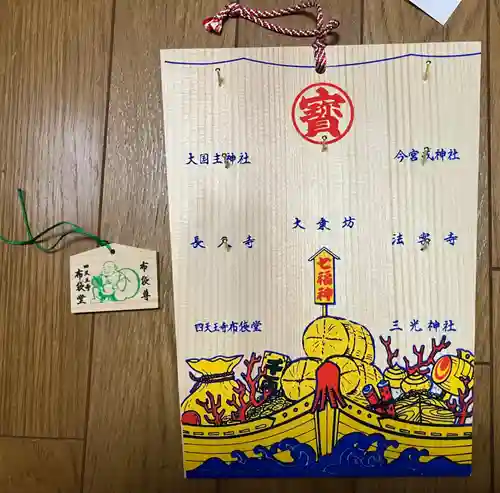 寳
大国主神社
今宮戎神社
大乗坊
長久寺
法案寺
七福神
四天王寺布袋堂
三光神社
布袋尊
四天王寺
布袋堂